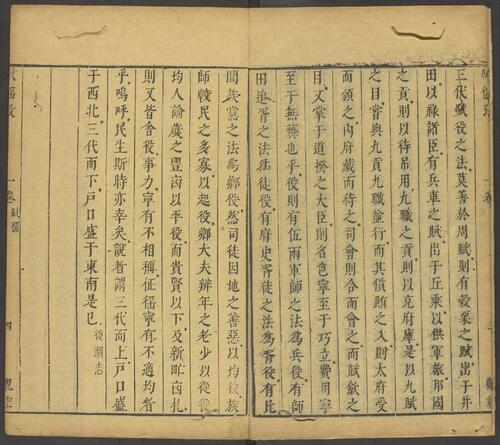 三代賦役之法莫善於周賦則有穀粟之賦出于井
田以祿諸臣有兵車之賦出于丘乘以供軍旅邦國
之貢則以待弔用九職之貢則以充府庫是以九賦
之目嘗與九貢九職並行而其債賄之入則太府受
而頒之內府藏而待之司會則合而會之而賦斂之
目又掌于道揆之大臣則名色寧至于巧立費用寧
至于無藝也乎役則有伍兩軍師之法為兵役有師
田追胥之法為徒役有府史胥徒之法為胥役有比
閭族黨之法為鄉役然司徒因地之善惡以均役族
師校民之多寡以起役鄉大夫辨年之老少以從役
均人論歲之豐凶以平役而貴賢以下及新甿凶札
則又皆舍役事力寧有不相稱征徭寧有不適均者
乎嗚呼民生斯時亦幸矣說者謂三代而上戶口盛
于西北三代而下戶口盛于東南是已 後湖志
賦役考
一卷 賦額
四